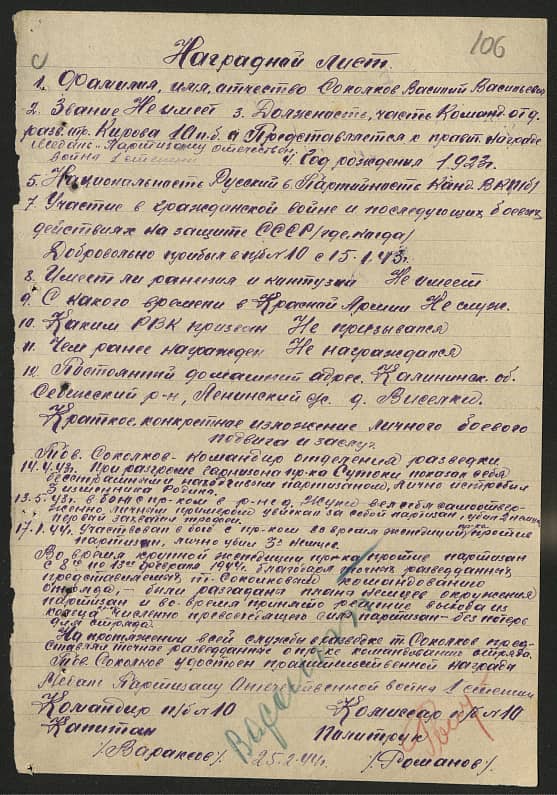 106
Наградной лист.
1. Фамилия, имя, отчество Соколков Василий Васильевич
2. Звание Не имеет 3. Должность, часть Команд. отд.
разв. отр. Кирова 10 п.б. Представляется к правит. награде
медаль "Партизану отечествен.
война 1 степени 4. Год рождения 1923 г.
5. Национальность Русский 6. Партийность Канд. ВКП(б)
7. Участие в гражданской войне и последующих боевых
действиях на защите СССР (где, когда)
Добровольно прибыл в п/б №10 с 15.1.43 г.
8. Имеет ли ранения и контузии Не имеет
9. С какого времени в Красной Армии Не служ.
10. Каким РВК призван Не призывался
11. Чем ранее награжден Не награждался
12. Постоянный домашний адрес. Калининск. об.
Себежский р-н, Ленинский с/с. д. Виселки.
Краткое, конкретное изложение личного боевого
подвига и заслуг
Тов. Соколков – командир отделения разведки
14.4.43г. При разгроме гарнизона пр-ка Сутоки показал себя
бесстрашным и находчивым партизаном, лично истребил
3 изменника Родины.
13.5.43г. в бою с пр-ком в р-не д. вел себя самоотвер-
женно, личным примером увлекая за собой партизан, убил 2 немцев,
первый захватил трофеи.
17.1.44г. Участвовал в бою с пр-ком во время экспедиции против
партизан, лично убил 3х немцев.
Во время крупной экспедиции пр-ка против партизан
с 8го по 13ое февраля 1944г. благодаря точных разведданных,
представленных т. Соколковым командованию
отряда, – были разгаданы планы немцев окружения
партизан и во-время принято решение выхода из
кольца численно превосходящего сил партизан – без потерь
для отряда.
На протяжении всей службы в разведке т. Соколков пред-
ставлял точные разведданные о пр-ке командованию отряда.
Тов. Соколков удостоен правительственной награды
Медаль Партизану Отечественной война 1 степени
Командир п/б №10 Комиссар п/б №10
Капитан Политрук
/Вараксов/ 25.2.44г. /Романов/